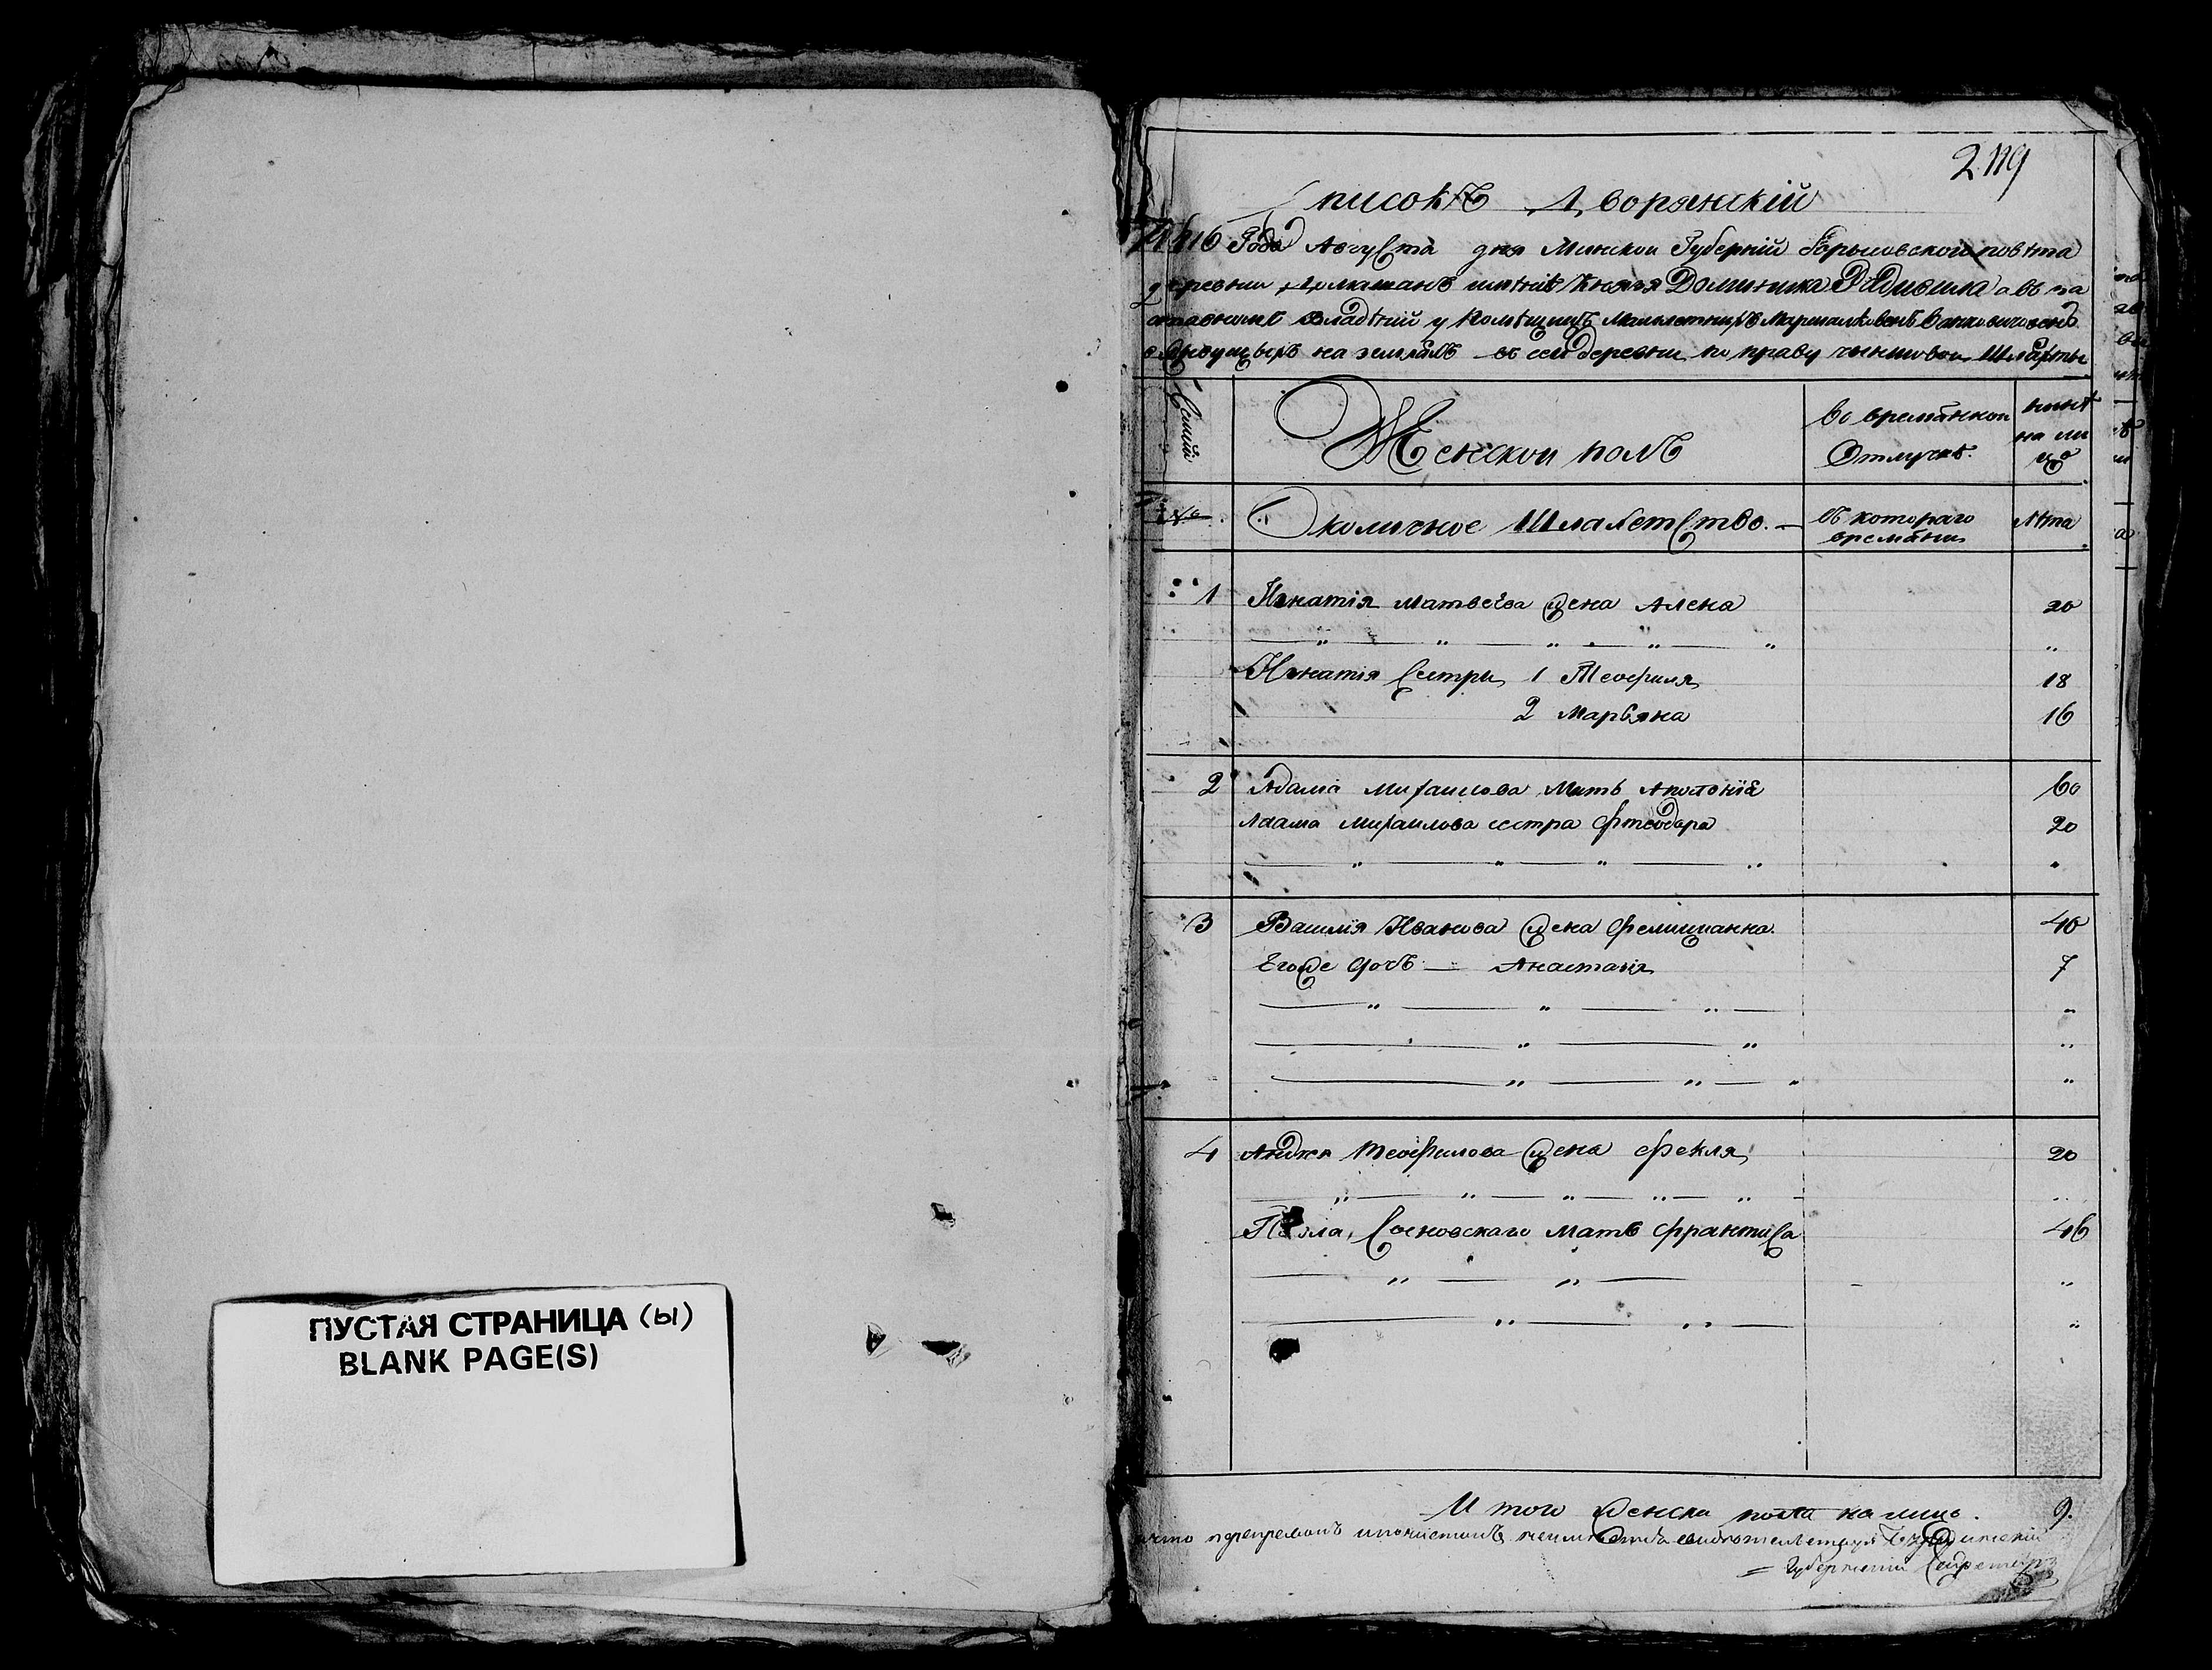 ПУСТАЯ СТРАНИЦА (ы)
BLANK PAGE(S)
2119
Списокъ Дворянскій
1816 Года Августа дня Минской Губерніи Борысовского повѣта
деревни имѣніѣ Князя Доминика Радивила а въ за
ставномъ владѣніи у Помѣщицъ Маршалковенъ Ваньковичовенъ
на земляхъ въ сей деревни по праву чыншовой Шляхты
Семей
Женской полъ
во времянной
Отлучкѣ.
нынѣ
на ли
цо
№
Околичное Шляхетство. —
съ котораго
времяни
Лѣта
1 Игнатія Матвеева жена Алена 20
Игнатія Сестры 1 Теофиля 18
2 Марьяна 16
2 Адама Михаилова Мать Аполонія 60
Адама Михаилова сестра Фтеодора 20
3 Василія Иванова жена Фелициянна. 40
Егоже дочь — Анастазія 7
4 Теофилова жена Фекля 20
Сосновскаго мать Францишка 46
И того женска пола налицо. 9.
Губернскій Секретарь